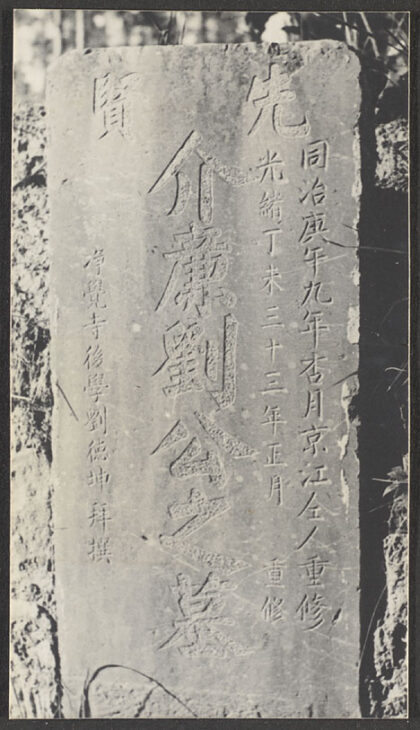 先賢
同治庚午九年杏月京江仝人重修
光緒丁未三十三年正月 重修
介廉劉公之墓
净覺寺後學劉德坤拜撰